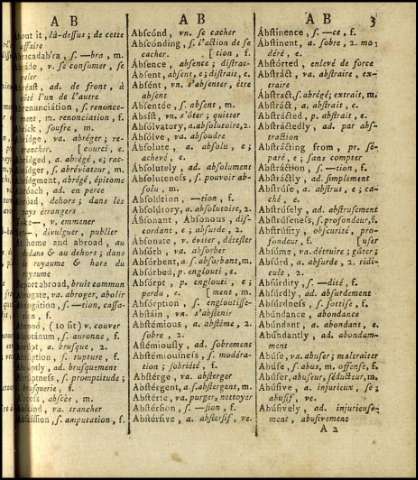 A B
A B
A B
3
it, là-dessus; de cette
affaire
s. —bra, m.
v. se consumer, se
ad. de front, à
côté l'un de l'autre
s. renonce-
ment, m. renonciation, f.
s. soufre, m.
va. abréger; re-
[courci, e.
a. abrégé, e; rac-
s. abréviateur, m.
s. abrégé, épitome
ad. en perse
ad. dehors; dans les
pays étrangers
v. emmener
divulguer, publier
At home and abroad, au
dedans & au dehors; dans
le royaume & hors du
royaume
Report abroad, bruit commun
va. abroger, abolir
s. —tion, cassa-
tion, f.
(to sit) v. couver
s. auronne, f.
a. brusque, 2.
s. rupture, f.
ad. brusquement
s. promptitude;
brusquerie, f.
s. abscès, m.
va. trancher
s. amputation, f.
Abscónd, vn. se cacher
Abscónding, s. l'action de se
cacher. [tion, f.
Absence, absence; distrac-
Absent, absent, e; distrait, e.
Absént, vn. s'absenter, être
absent
Absentée, s. absent, m.
Absíst, vn. s'ôter; quitter
Absólvatory, a. absolutoire, 2.
Absólve, va. absoudre
Absolute, a. absolu, e;
achevé, e.
Absolutely, ad. absolument
Absoluteness, s. pouvoir ab-
solu, m.
Absolútion, —tion, f.
Absólutory, a. absolutoire, 2.
Absonant, Absonous, dis-
cordant, e; absurde, 2.
Absonate, v. éviter, détester
Absórb, va. absorber
Absórbent, a. s. absorbant, m.
Absórbed, p. englouti, e.
Absórpt, p. englouti, e;
perdu, e. [ment, m.
Absórption, s. engloutisse-
Abstáin, vn. s'abstenir
Abstémious, a. abstème, 2.
sobre, 2.
Abstémiously, ad. sobrement
Abstémiousness, s. modéra-
tion; sobriété, f.
Abstérge, va. absterger
Abstérgent, a. s. abstergent, m.
Abstérse, va. purger, nettoyer
Abstérsion, s. —sion, f.
Abstérsive, a. abstersif, ve.
Abstinence, s. —ce, f.
Abstinent, a. sobre, 2. mo-
déré, e.
Abstórted, enlevé de force
Abstráct, va. abstraire, ex-
traire
Abstráct, s. abrégé; extrait, m.
Abstráct, a. abstrait, e.
Abstrácted, p. abstrait, e.
Abstráctedly, ad. par abs-
traction
Abstrácting from, pr. sé-
paré, e; sans compter
Abstráction, s. —tion, f.
Abstráctly, ad. simplement
Abstrúse, a. abstrus, e; ca-
ché, e.
Abstrúsely, ad. abstrusement
Abstrúseness, s. profondeur, f.
Abstrúsity, obscurité, pro-
fondeur, f. [user
Absúme, va. détruire; gâter;
Absúrd, a. absurde, 2. ridi-
cule, 2.
Absúrdity, s. —dité, f.
Absúrdly, ad. absurdement
Absúrdness, s. sottise, f.
Abúndance, abondance
Abúndant, a. abondant, e.
Abúndantly, ad. abondam-
ment
Abúse, va. abuser; maltraiter
Abúse, s. abus, m. offense, f.
Abúser, abuseur, séducteur, m.
Abúsive, a. injurieux, se;
abusif, ve.
Abúsively, ad. injurieuse-
ment, abusivement
A 2